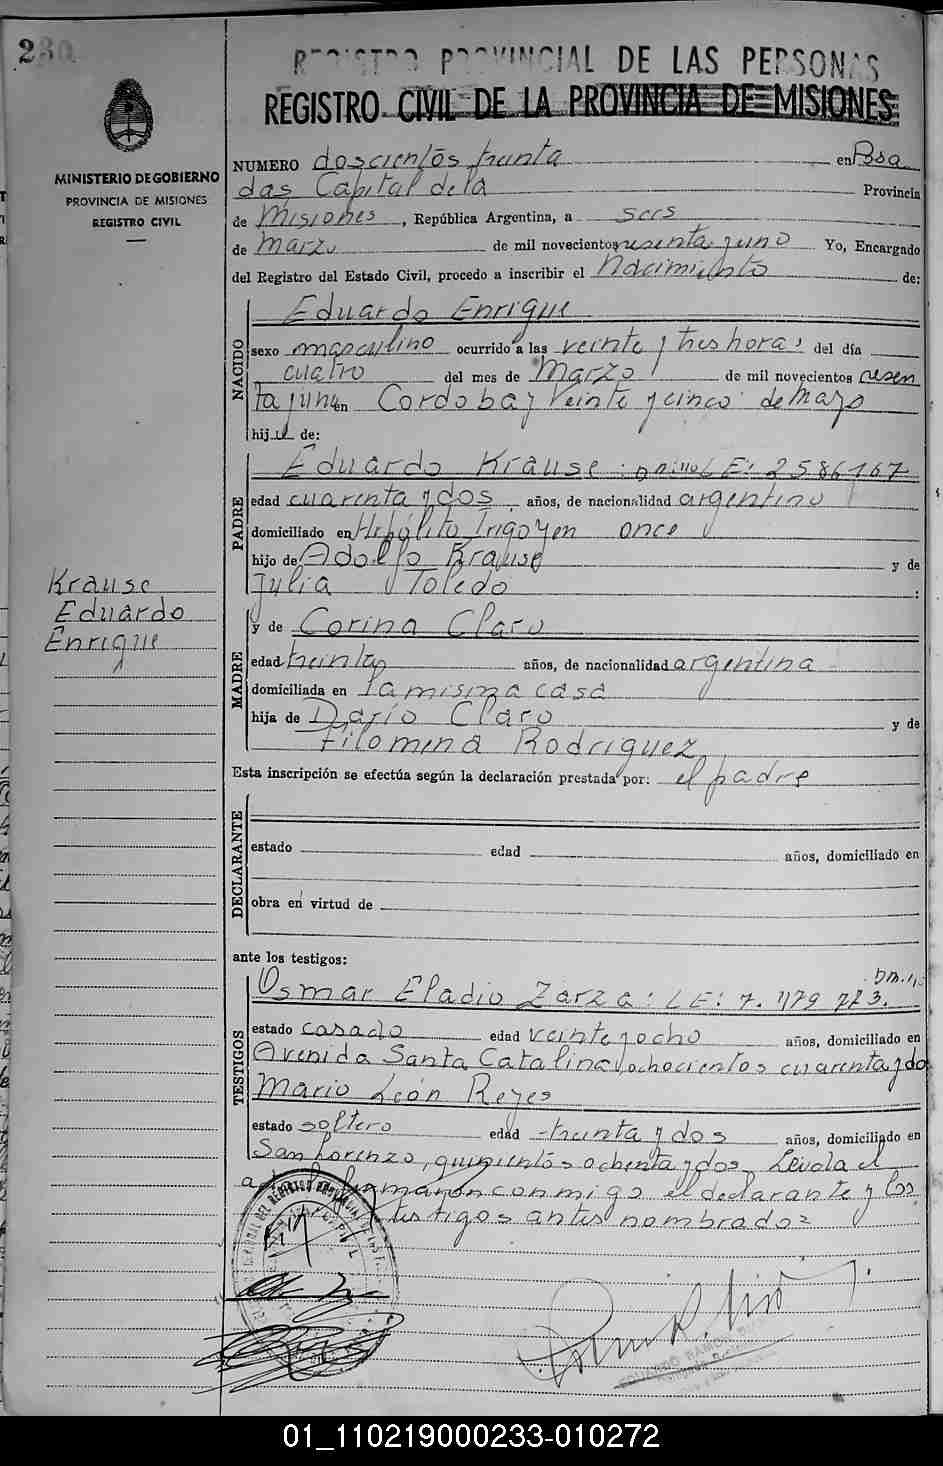 230
REGISTRO PROVINCIAL DE LAS PERSONAS
REGISTRO CIVIL DE LA PROVINCIA DE MISIONES
MINISTERIO DE GOBIERNO
PROVINCIA DE MISIONES
REGISTRO CIVIL
NUMERO doscientos treinta en Posa
das Capital de la Provincia
de Misiones, República Argentina, a seis
de Marzo de mil novecientos sesenta y uno Yo, Encargado
del Registro del Estado Civil, procedo a inscribir el Nacimiento de:
NACIDO
Eduardo Enrique
sexo masculino ocurrido a las veinte y tres horas del día
cuatro del mes de Marzo de mil novecientos sesen
ta y uno en Cordoba y Veinte y cinco de Mayo
hijo de:
PADRE
Eduardo Krause: L E: 2586167
edad cuarenta y dos años, de nacionalidad argentino
domiciliado en Hipólito Irigoyen once
hijo de Adolfo Krause y de
Julia Toledo :
Krause
Eduardo
Enrique
MADRE
y de Corina Claro
edad treinta años, de nacionalidad argentina
domiciliada en la misma casa
hija de Darío Claro y de
Filomena Rodriguez
Esta inscripción se efectúa según la declaración prestada por: el padre
DECLARANTE
estado edad años, domiciliado en
obra en virtud de
ante los testigos:
TESTIGOS
Osmar Eladio Zarza: L E: 7.479.773.
estado casado edad veinte y ocho años, domiciliado en
Avenida Santa Catalina ochocientos cuarenta y dos
Mario León Reyes
estado soltero edad treinta y dos años, domiciliado en
San Lorenzo, quinientos ochenta y dos. Leída el
acta la firmaron conmigo el declarante y los
testigos antes nombrados
EDUARDO RAMON
01_110219000233-010272